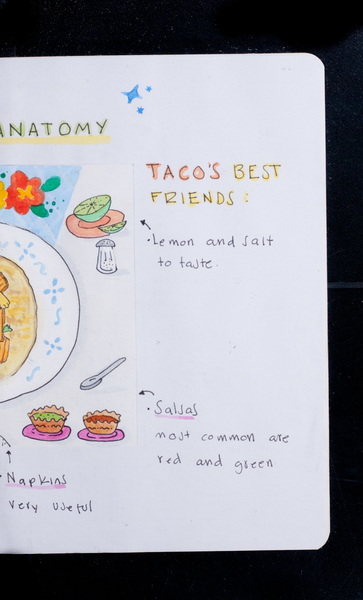 ANATOMY
TACO'S BEST
FRIENDS:
• Lemon and salt
to taste.
• Salsas
most common are
red and green
• Napkins
very useful